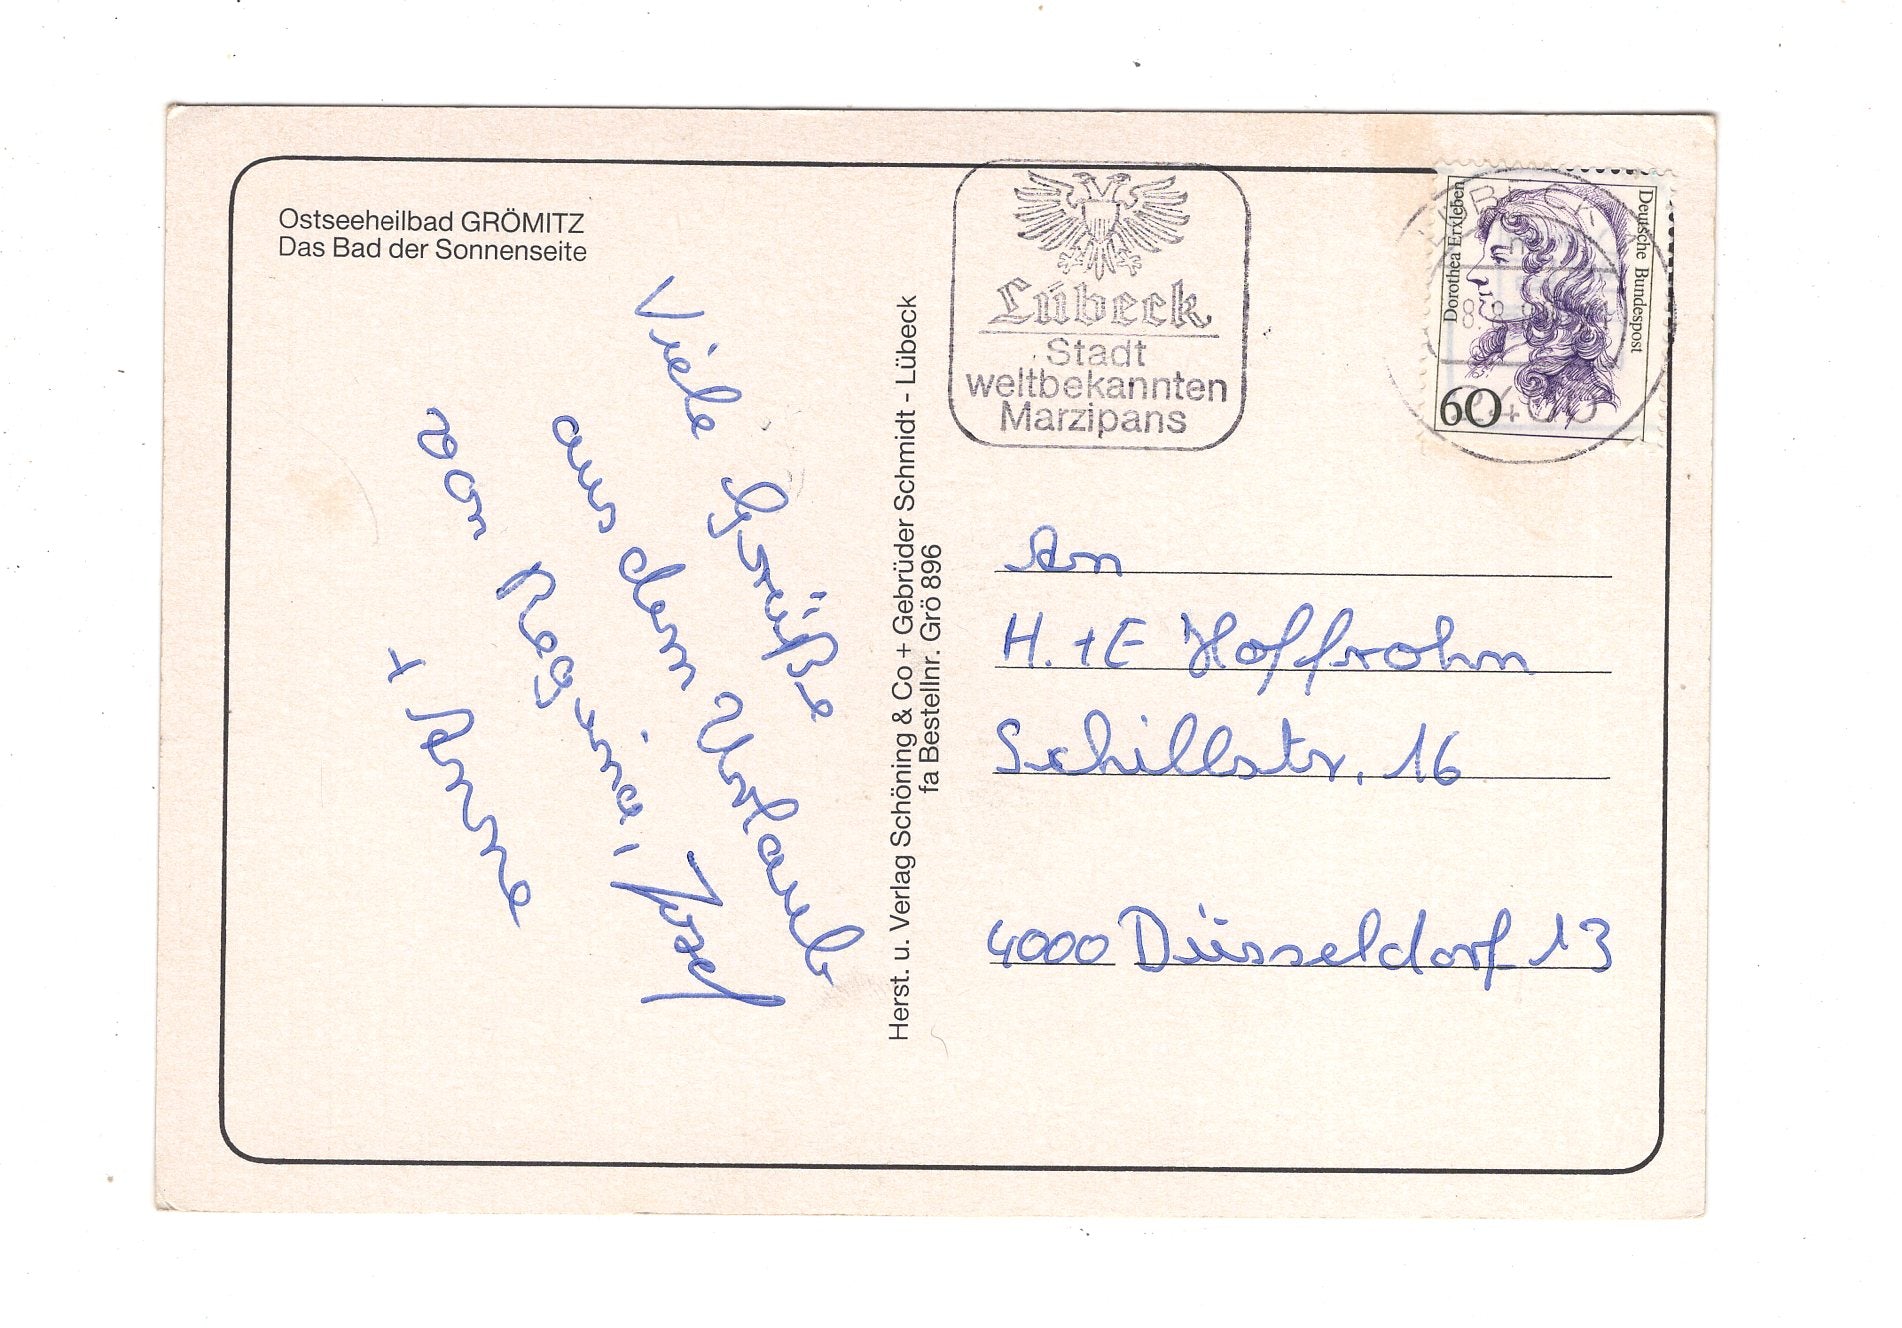 Ostseeheilbad GRÖMITZ
Das Bad der Sonnenseite
Viele Grüße
aus dem Urlaub
von Regina, Josef
+ Anne
Herst. u. Verlag Schöning & Co + Gebrüder Schmidt - Lübeck
fa Bestellnr. Grö 896
Lübeck
Stadt
weltbekannten
Marzipans
Dorothea Erxleben
Deutsche Bundespost
60
An
H. + E Hoffrohm
Schillstr. 16
4000 Düsseldorf 13